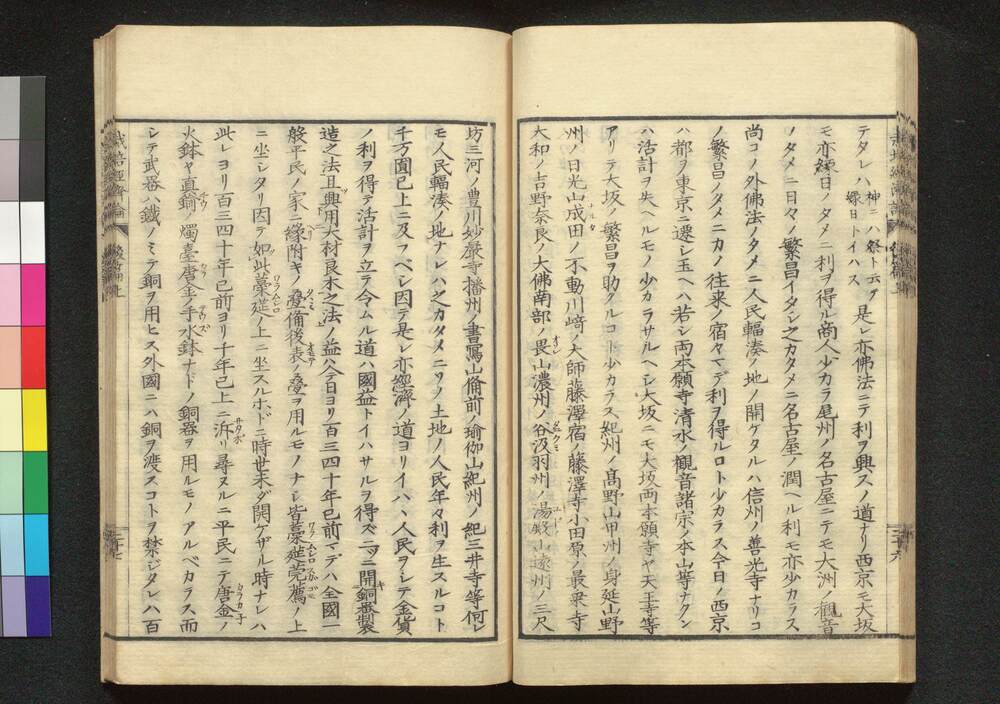 テタレハ 神ニハ祭ト云ヲ 縁日トイハス 是レ亦佛法ニテ利ヲ興スノ道ナリ西京モ大坂
モ亦縁日ノタメニ利ヲ得ル商人少カラ尾州ノ名古屋ニテモ大洲ノ観音
ノタメニ日々ノ繁昌イタシ之カタメニ名古屋ノ潤ヘル利モ亦少カラス
尚コノ外佛法ノタメニ人民輻湊ノ地ノ開ケタルハ信州ノ善光寺ナリコ
ノ繁昌ノタメニカノ往来ノ宿々マデ利ヲ得ルロト少カラス今日ノ西京
ハ都ヲ東京ニ遷シ玉ヘハ若シ両本願寺清水ノ観音諸宗ノ本山等ナクン
ハ活計ヲ失ヘルモノ少カラサルヘシ大坂ニモ大坂両本願寺ヤ天王寺等
アリテ大坂ノ繁昌ヲ助クルコト少カラス紀州ノ高野山甲州ノ身延山野
州ノ日光山成田ノ不動川崎ノ大師藤澤宿ノ藤澤寺小田原ノ最乗寺
大和ノ吉野奈良ノ大佛南部ノ畏山濃州ノ谷汲羽州ノ湯殿山遠州ノ三尺
坊三河ノ豊川妙厳寺播州ノ書寫山備前ノ瑜伽山紀州ノ紀三井寺等何レ
モ人民輻湊ノ地ナレハ之カタメニソノ土地ノ人民年々利ヲ生スルコト
千万圓已上ニ及フベシ因テ是レ亦經濟ノ道ヨリイハヽ人民ヲシテ金貨
ノ利ヲ得テ活計ヲ立ラ令ムル道ハ國益トイハサルヲ得ズ二ツニ開銅器製
造之法且興用大材良木之法ノ益ハ今日ヨリ百三四十年已前マデハ全國一
般平民ノ家ニ縁附キノ疊備後表ノ疊ヲ用ルモノナシ皆藁莚莞薦ノ上
ニ坐シタリ因テ如此藁莚ノ上ニ坐スルホドニ時世未ダ開ケザル時ナレハ
此レヨリ百三四十年已前ヨリ千年已上ニ泝リ尋ヌルニ平民ニテ唐金ノ
火鉢ヤ真鍮ノ燭臺唐金ノ手水鉢ナドノ銅器ヲ用ルモノアルベカラス而
シテ武器ハ鐵ノミテ銅ヲ用ヒス外國ニハ銅ヲ渡スコトヲ禁ジタレハ百